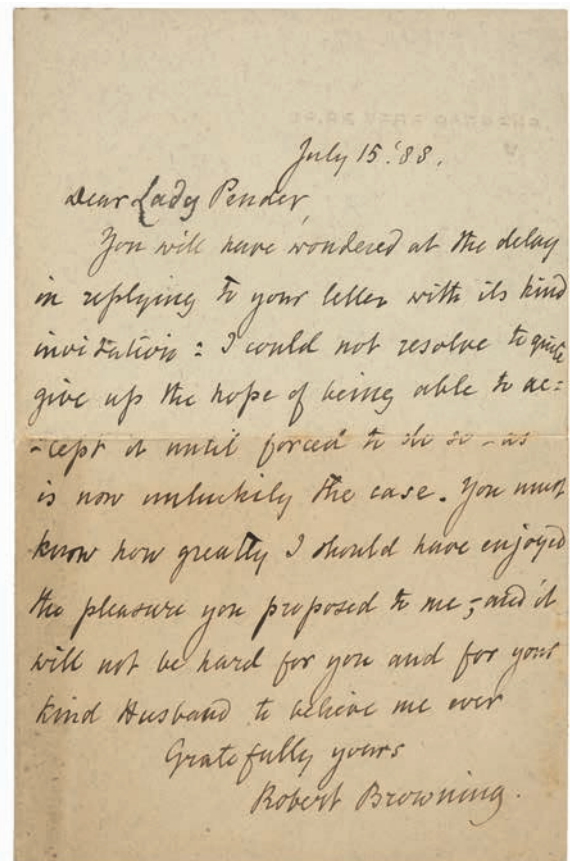 July 15. '88.
Dear Lady Pender,
You will have wondered at the delay
in replying to your letter with its kind
invitation : I could not resolve to quite
give up the hope of being able to ac=
-cept it until forced to do so - as
is now unluckily the case. You must
know how greatly I should have enjoyed
the pleasure you proposed to me ; and it
will not be hard for you and for your
kind Husband to believe me ever
Gratefully yours
Robert Browning.